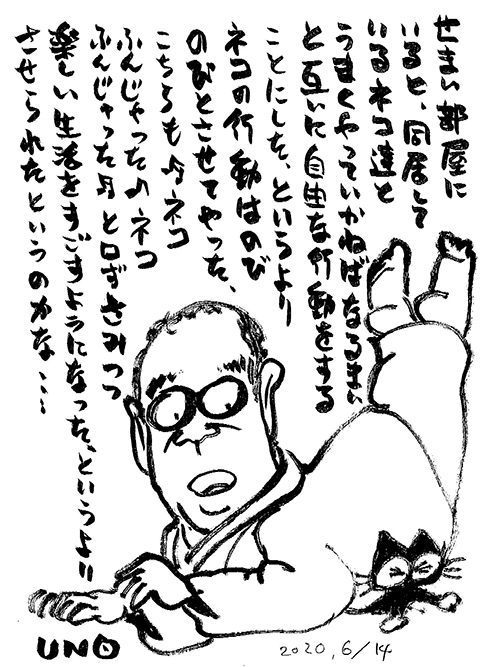 せまい部屋に
いると、同居して
いるネコ達と
うまくやっていかねばなるまい
と互いに自由な行動をする
ことにした、というより
ネコの行動はのび
のびとさせてやった、
こちらも♪ネコ
ふんじゃった♪ネコ
ふんじゃった♪と口ずさみつつ
楽しい生活をすごすようになった、というより
させられたというのかな…
UNO
2020,6/14